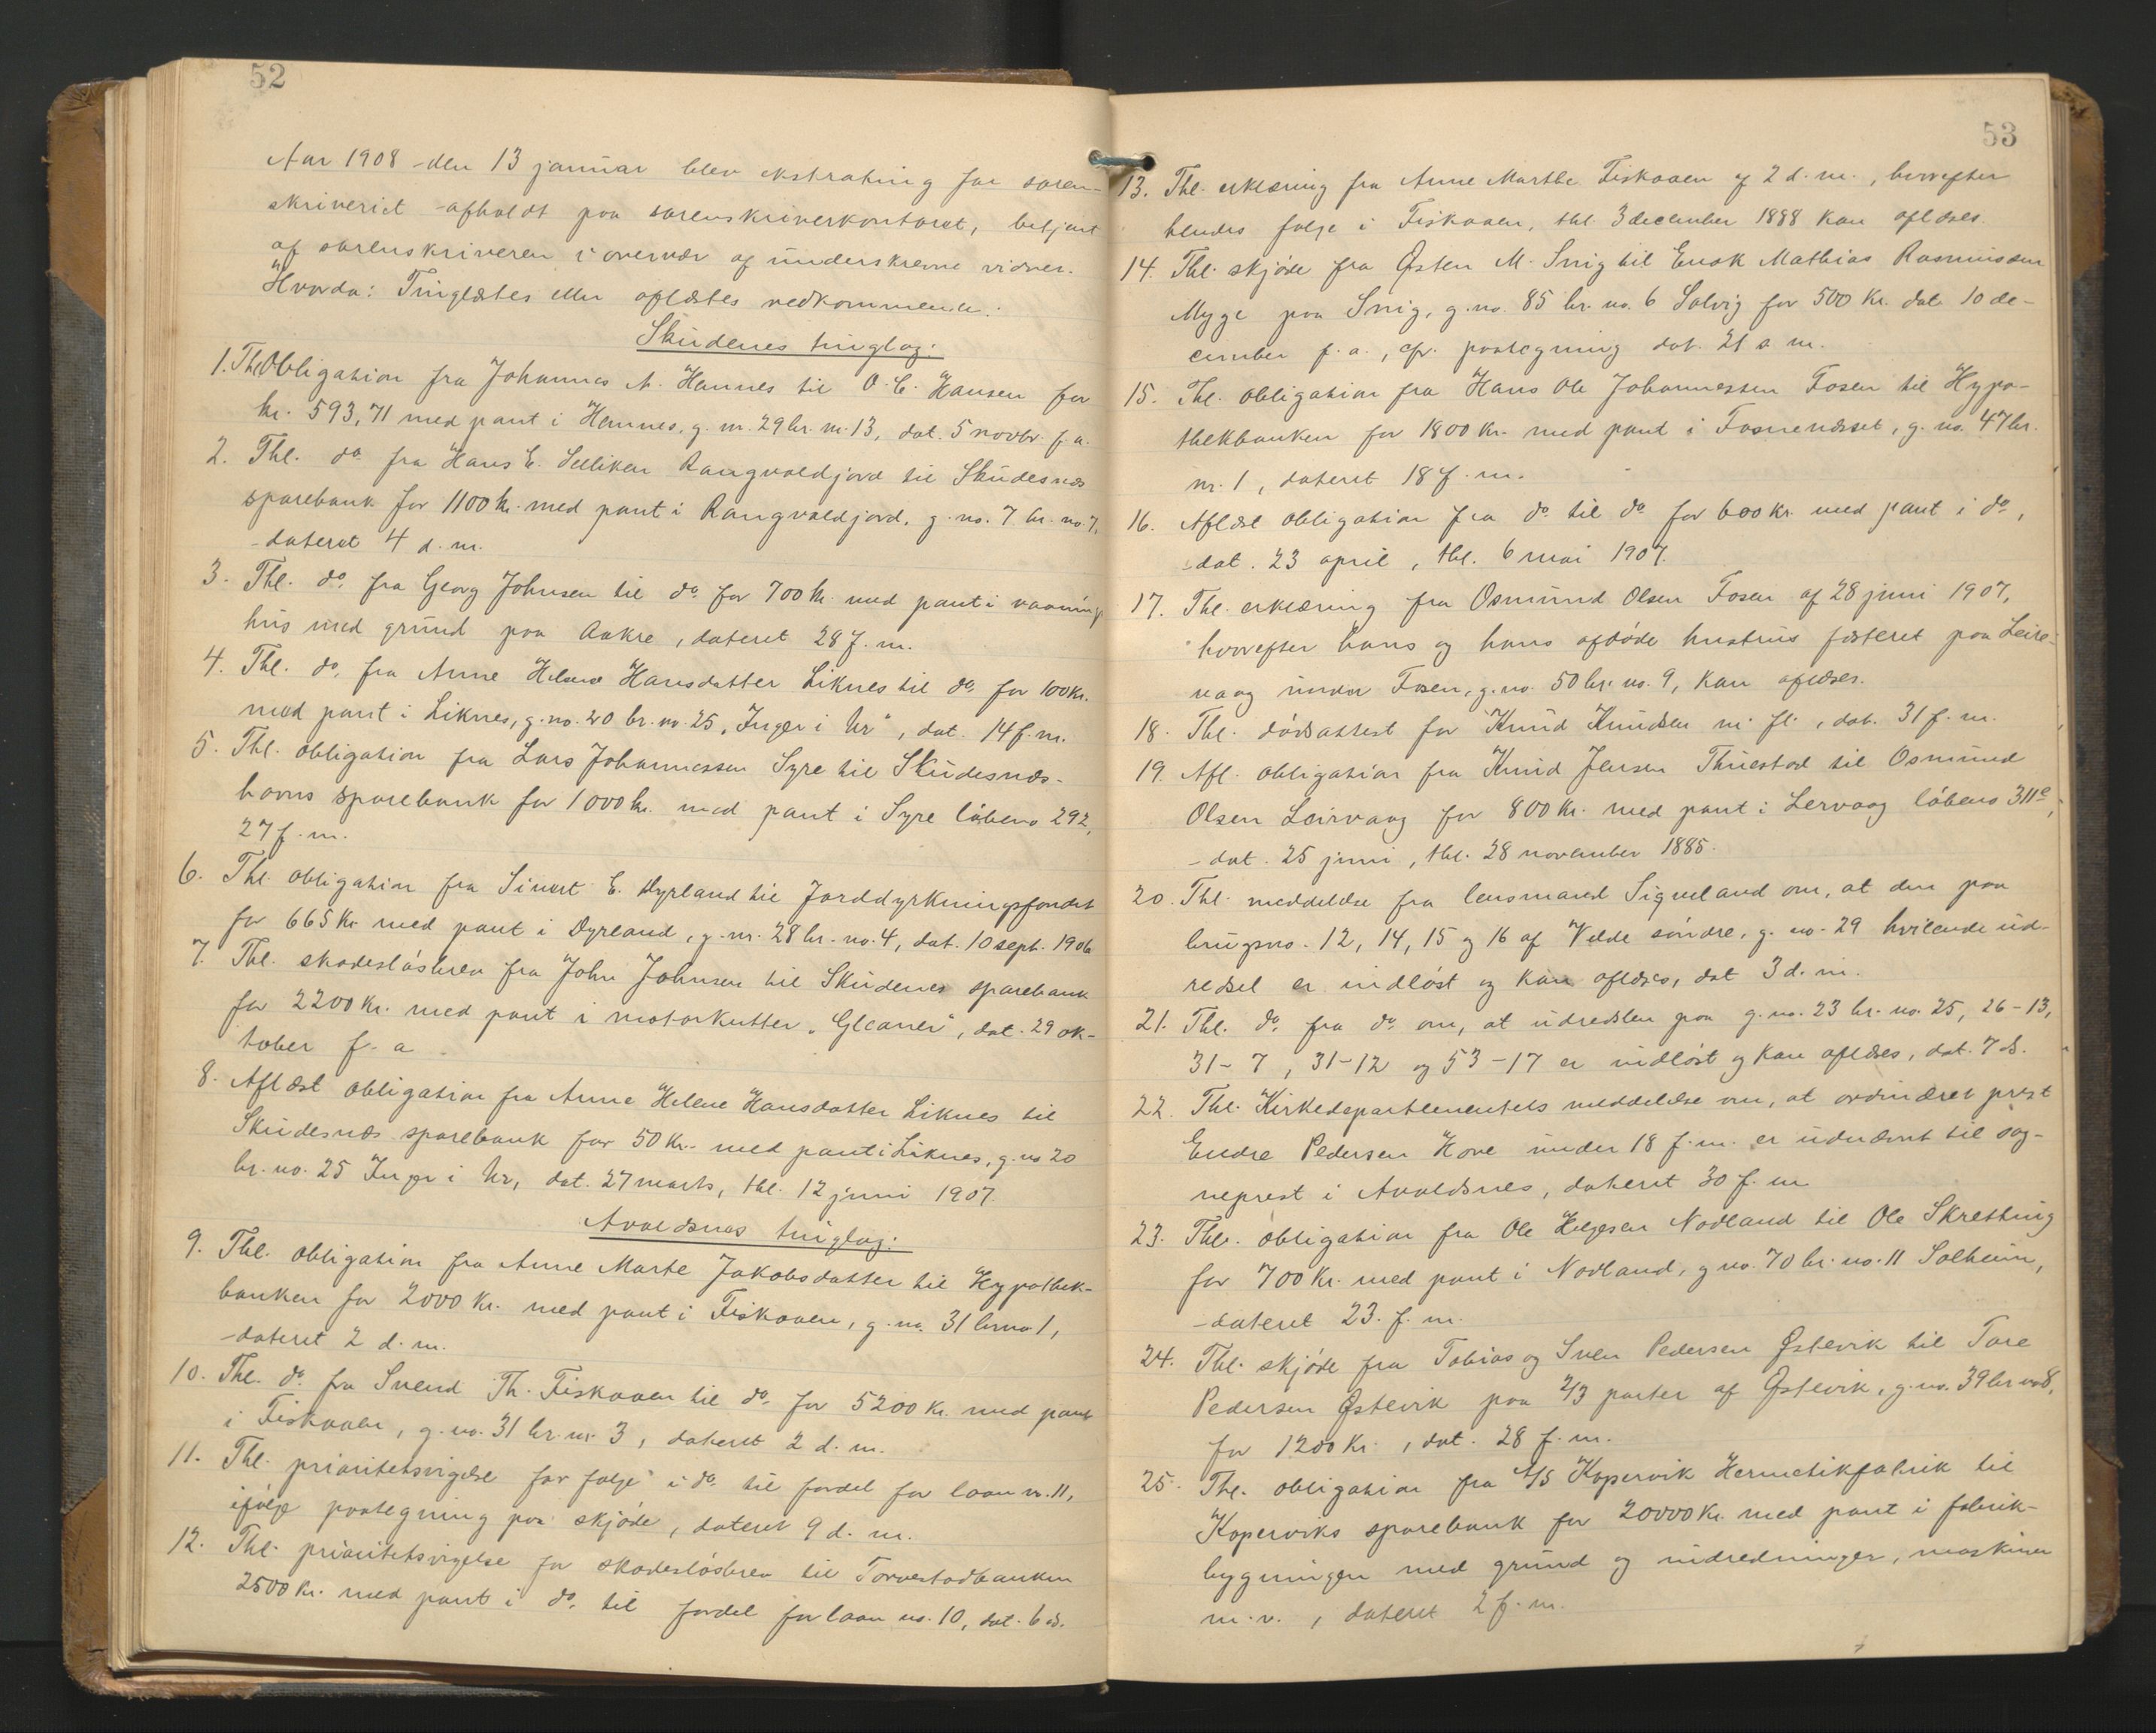 52
Aar 1908 den 13 januar blev ekstrating for soren-
skriveriet afholdt paa sorenskriverkontoret, betjent
af sorenskriveren i overvær af underskrevne vidner.
Hvorda: Tinglæstes eller aflæstes vedkommende:
Skudenes tinglag:
1. Thl. Obligation fra Johannes A. Hemnes til O. C. Hansen for
kr. 593,71 med pant i Hemnes, g. nr. 29 br. nr. 13, dat. 5 novbr. f. a.
2. Thl. do fra Hans E. Selliken Rangvaldjord til Skudesnæs
sparebank for 1100 kr. med pant i Rangvaldjord, g. no. 7 br. no. 7,
dateret 4 d. m.
3. Thl. do. fra Georg Johnsen til do. for 700 kr. med pant i vaanings
hus med grund paa Aakre, dateret 28 f. m.
4. Thl. do. fra Anne Helene Hansdatter Liknes til do. for 100 Kr.
med pant i Liknes, g. no. 20 br. no. 25 „Inger i Ur“, dat. 14 f. m.
5. Thl. obligation fra Lars Johannessen Syre til Skudesnæs-
havns sparebank for 1000 kr. med pant i Syre løbeno 292,
27 f. m.
6. Thl. obligation fra Sivert E. Dyrland til Jorddyrkningsfondet
for 665 Kr. med pant i Dyrland, g. nr. 28 br. no. 4, dat. 10 sept. 1906
7. Thl. skadesløsbrev fra John Johnsen til Skudenes sparebank
for 2200 Kr. med pant i motorkutter „Gleaner“, dat. 29 ok-
tober f. a.
8. Aflæst obligation fra Anne Helene Hansdatter Liknes til
Skudesnæs sparebank for 50 Kr. med pant i Liknes, g. no 20
br. no. 25 Inger i Ur, dat. 27 marts, thl. 12 juni 1907.
Avaldsnes tinglag:
9. Thl. obligation fra Anne Marte Jakobsdatter til Hypothek-
banken for 2000 Kr. med pant i Fiskaaen, g. no. 31 br no 1,
dateret 2 d. m.
10. Thl. do. fra Svend Th. Fiskaaen til do. for 5200 Kr. med pant
i Fiskaaen, g. no. 31 br. nr. 3, dateret 2 d. m.
11. Thl. prioritetsvigelse for følge i do. til fordel for laan n. 11,
ifølge paategning paa skjøde, dateret 9 d. m.
12. Thl. prioritetsvigelse for skadesløsbrev til Torvestadbanken
2500 Kr. med pant i do. til fordel for laan no. 10, dat. 6 ds.
53
13. Thl. erklæring fra Anne Marthe Fiskaaen af 2 d. m., hvorefter
hendes følge i Fiskaaen, thl. 3 december 1888 kan aflæses.
14. Thl. skjøde fra Østen M. Snig til Enok Mathias Rasmussen
Myge paa Snig, g. no. 85 br. no. 6 Solvig for 500 Kr. dat. 10 de-
cember f. a., cfr. paategning dat. 21 s. m.
15. Thl. obligation fra Hans Ole Johannessen Fosen til Hypo-
thekbanken for 1800 Kr. med pant i Fosenenæsset, g. no. 47 br.
nr. 1, dateret 18 f. m.
16. Aflæst obligation fra do. til do. for 600 Kr. med pant i do,
dat. 23 april, thl. 6 mai 1907.
17. Thl. erklæring fra Osmund Olsen Fosen af 28 juni 1907,
hvorefter hans og hans afdøde hustrus fæsteret paa Leire-
vaag under Fosen, g. no. 50 br. no. 9, kan aflæses.
18. Thl. dødsattest for Knud Knudsen m. fl., dat. 31 f. m.
19. Afl. obligation fra Knud Jensen Thuestad til Osmund
Olsen Leirvaag for 800 Kr. med pant i Lervaag løbeno 311c,
dat. 25 juni, thl. 28 november 1885.
20. Thl. meddelelse fra lensmand Sigveland om, at den paa
brugsno. 12, 14, 15 og 16 af Velde søndre, g. no. 29 hvilende ud-
redsel er indløst og kan aflæses, dat. 3 d. m.
21. Thl. do. fra do. om, at udredslen paa g. no. 23 br. no. 25, 26-13,
31-7, 31-12 og 53-17 er indløst og kan aflæses, dat. 7 ds.
22. Thl. Kirkedepartementets meddelelse om, at ordinæret prest
Endre Pedersen Hove under 18 f. m. er udnævnt til sog-
neprest i Avaldsnes, dateret 30 f. m.
23. Thl. obligation fra Ole Helgesen Nodland til Ole Skretting
for 700 Kr. med pant i Nodland, g no. 70 br. no. 11 Solheim,
dateret 23. f. m.
24. Thl. skjøde fra Tobias og Sven Pedersen Østevik til Tore
Pedersen Østevik paa 2/3 parter af Østevik, g. no. 39 br no 8,
for 1200 Kr., dat. 28 f. m.
25. Thl. obligation fra A/S Kopervik Hermetikfabrik til
Koperviks sparebank for 20000 Kr. med pant i fabrik-
bygningen med grund og indredninger, maskiner
m. v., dateret 2 f. m.